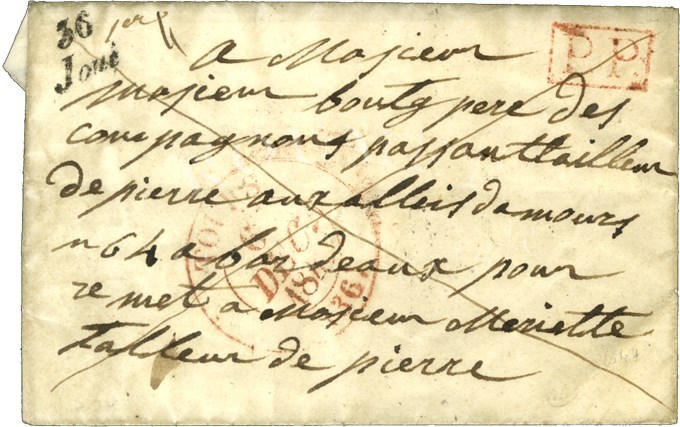 36
Joué
P.P.
a Mosieur
mosieur boutg pere des
compagnons passant tailleur
de pierre aux alleis damours
n 64 a bordeaux pour
re met a Mosieur Meriette
talleur de pierre
TOURS
6
DEC.
36